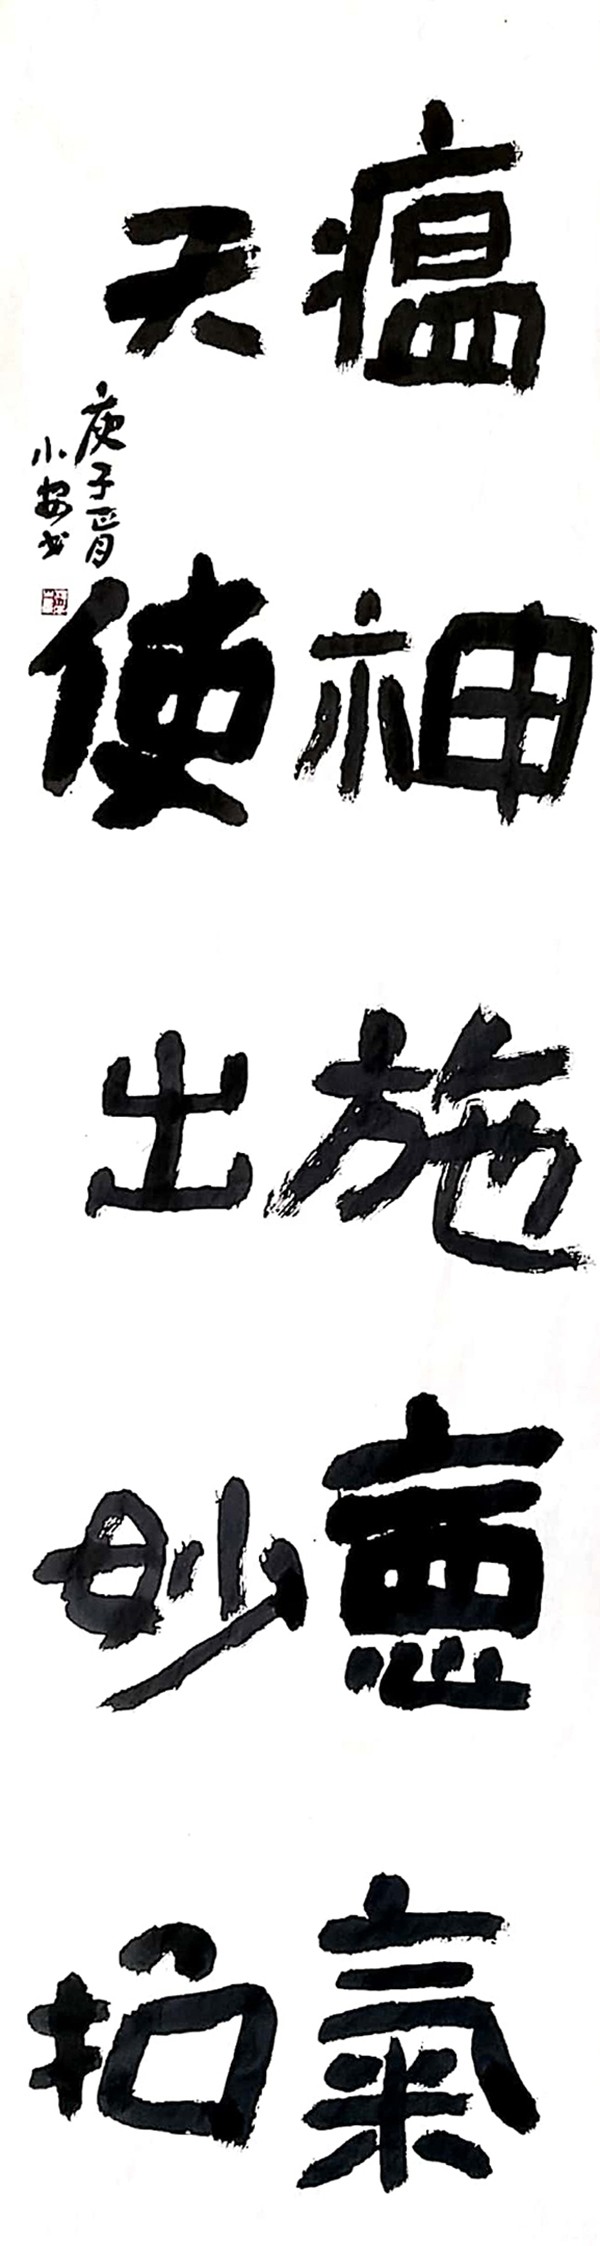 瘟神施惡氣
天使出妙招
庚子正月
小安书